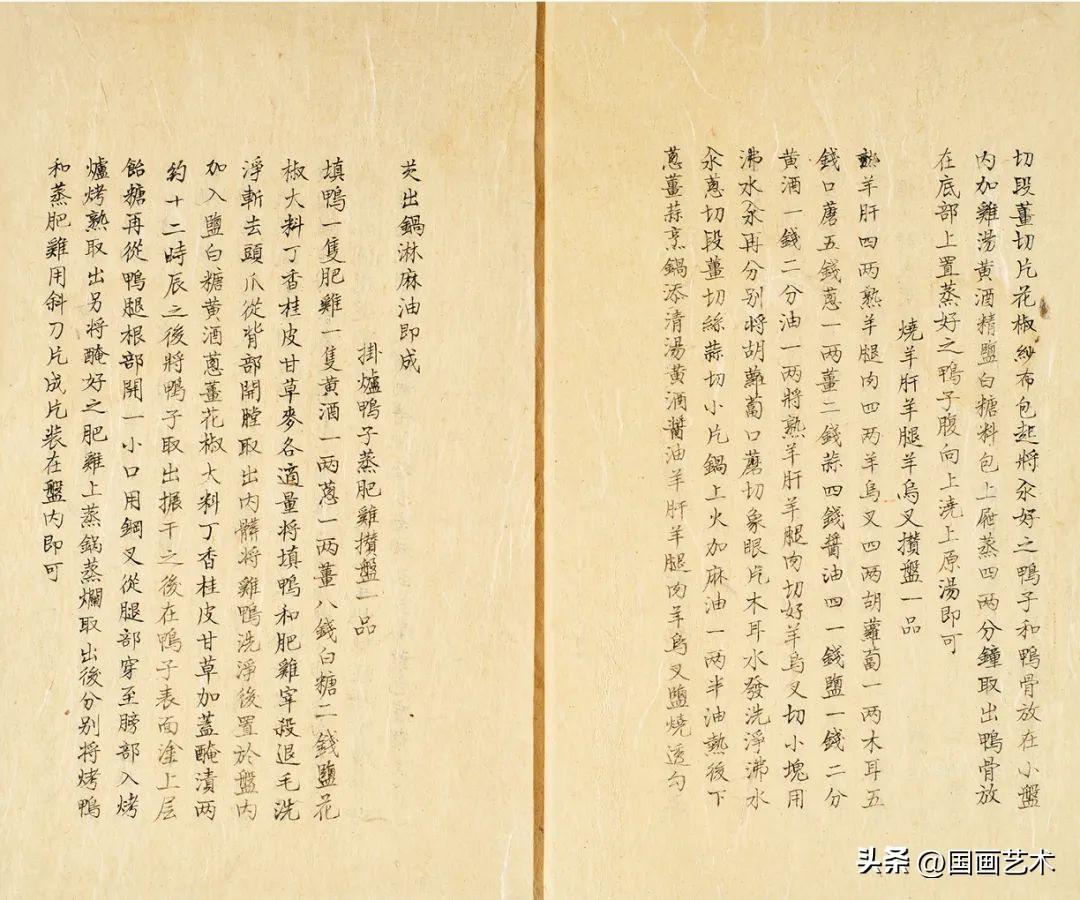 切段薑切片花椒紗布包起將汆好之鴨子和鴨骨放在小盤
內加雞湯黃酒精鹽白糖料包上屜蒸四兩分鐘取出鴨骨放
在底部上置蒸好之鴨子腹向上澆上原湯即可
燒羊肝羊腿羊烏叉攢盤一品
熟羊肝四兩熟羊腿肉四两羊烏叉四两胡蘿蔔一两木耳五
錢口蘑五錢蔥一两薑二錢蒜四錢醬油四一錢鹽一錢二分
黃酒一錢二分油一两將熟羊肝羊腿肉切好羊烏叉切小塊用
沸水汆再分别將胡蘿蔔口蘑切象眼片木耳水發洗淨沸水
汆蔥切段薑切絲蒜切小片鍋上火加麻油一两半油熱後下
蔥薑蒜烹鍋添清湯黃酒醬油羊肝羊腿肉羊烏叉鹽燒透勾
芡出鍋淋麻油即成
掛爐鴨子蒸肥雞攢盤一品
填鴨一隻肥雞一隻黃酒一两蔥一两薑八錢白糖二錢鹽花
椒大料丁香桂皮甘草麥各適量將填鴨和肥雞宰殺退毛洗
淨斬去頭爪從背部開膛取出內髒將雞鴨洗淨後置於盤内
加入鹽白糖黃酒蔥薑花椒大料丁香桂皮甘草加蓋醃漬两
約十二時辰之後將鴨子取出振干之後在鴨子表面塗上层
飴糖再從鴨腿根部開一小口用鋼叉從腿部穿至膀部入烤
爐烤熟取出另將醃好之肥雞上蒸鍋蒸爛取出後分别將烤鴨
和蒸肥雞用斜刀片成片装在盤内即可
头条 @国画艺术